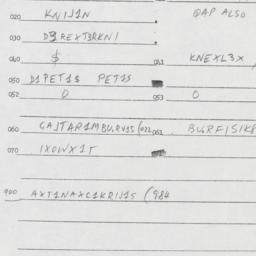 020 KNIJ1N . QAP ALSO
030 D3REXT3RKNI
040 $ 041 KNEXL3X
050 D1PET1S PET1S
052 0 053 0
060 GAJTAR1MBURV1S (022 061 . BURFISIKB
070 IX0WX1T
900 AXT1NAXC1KRIJ1S (984